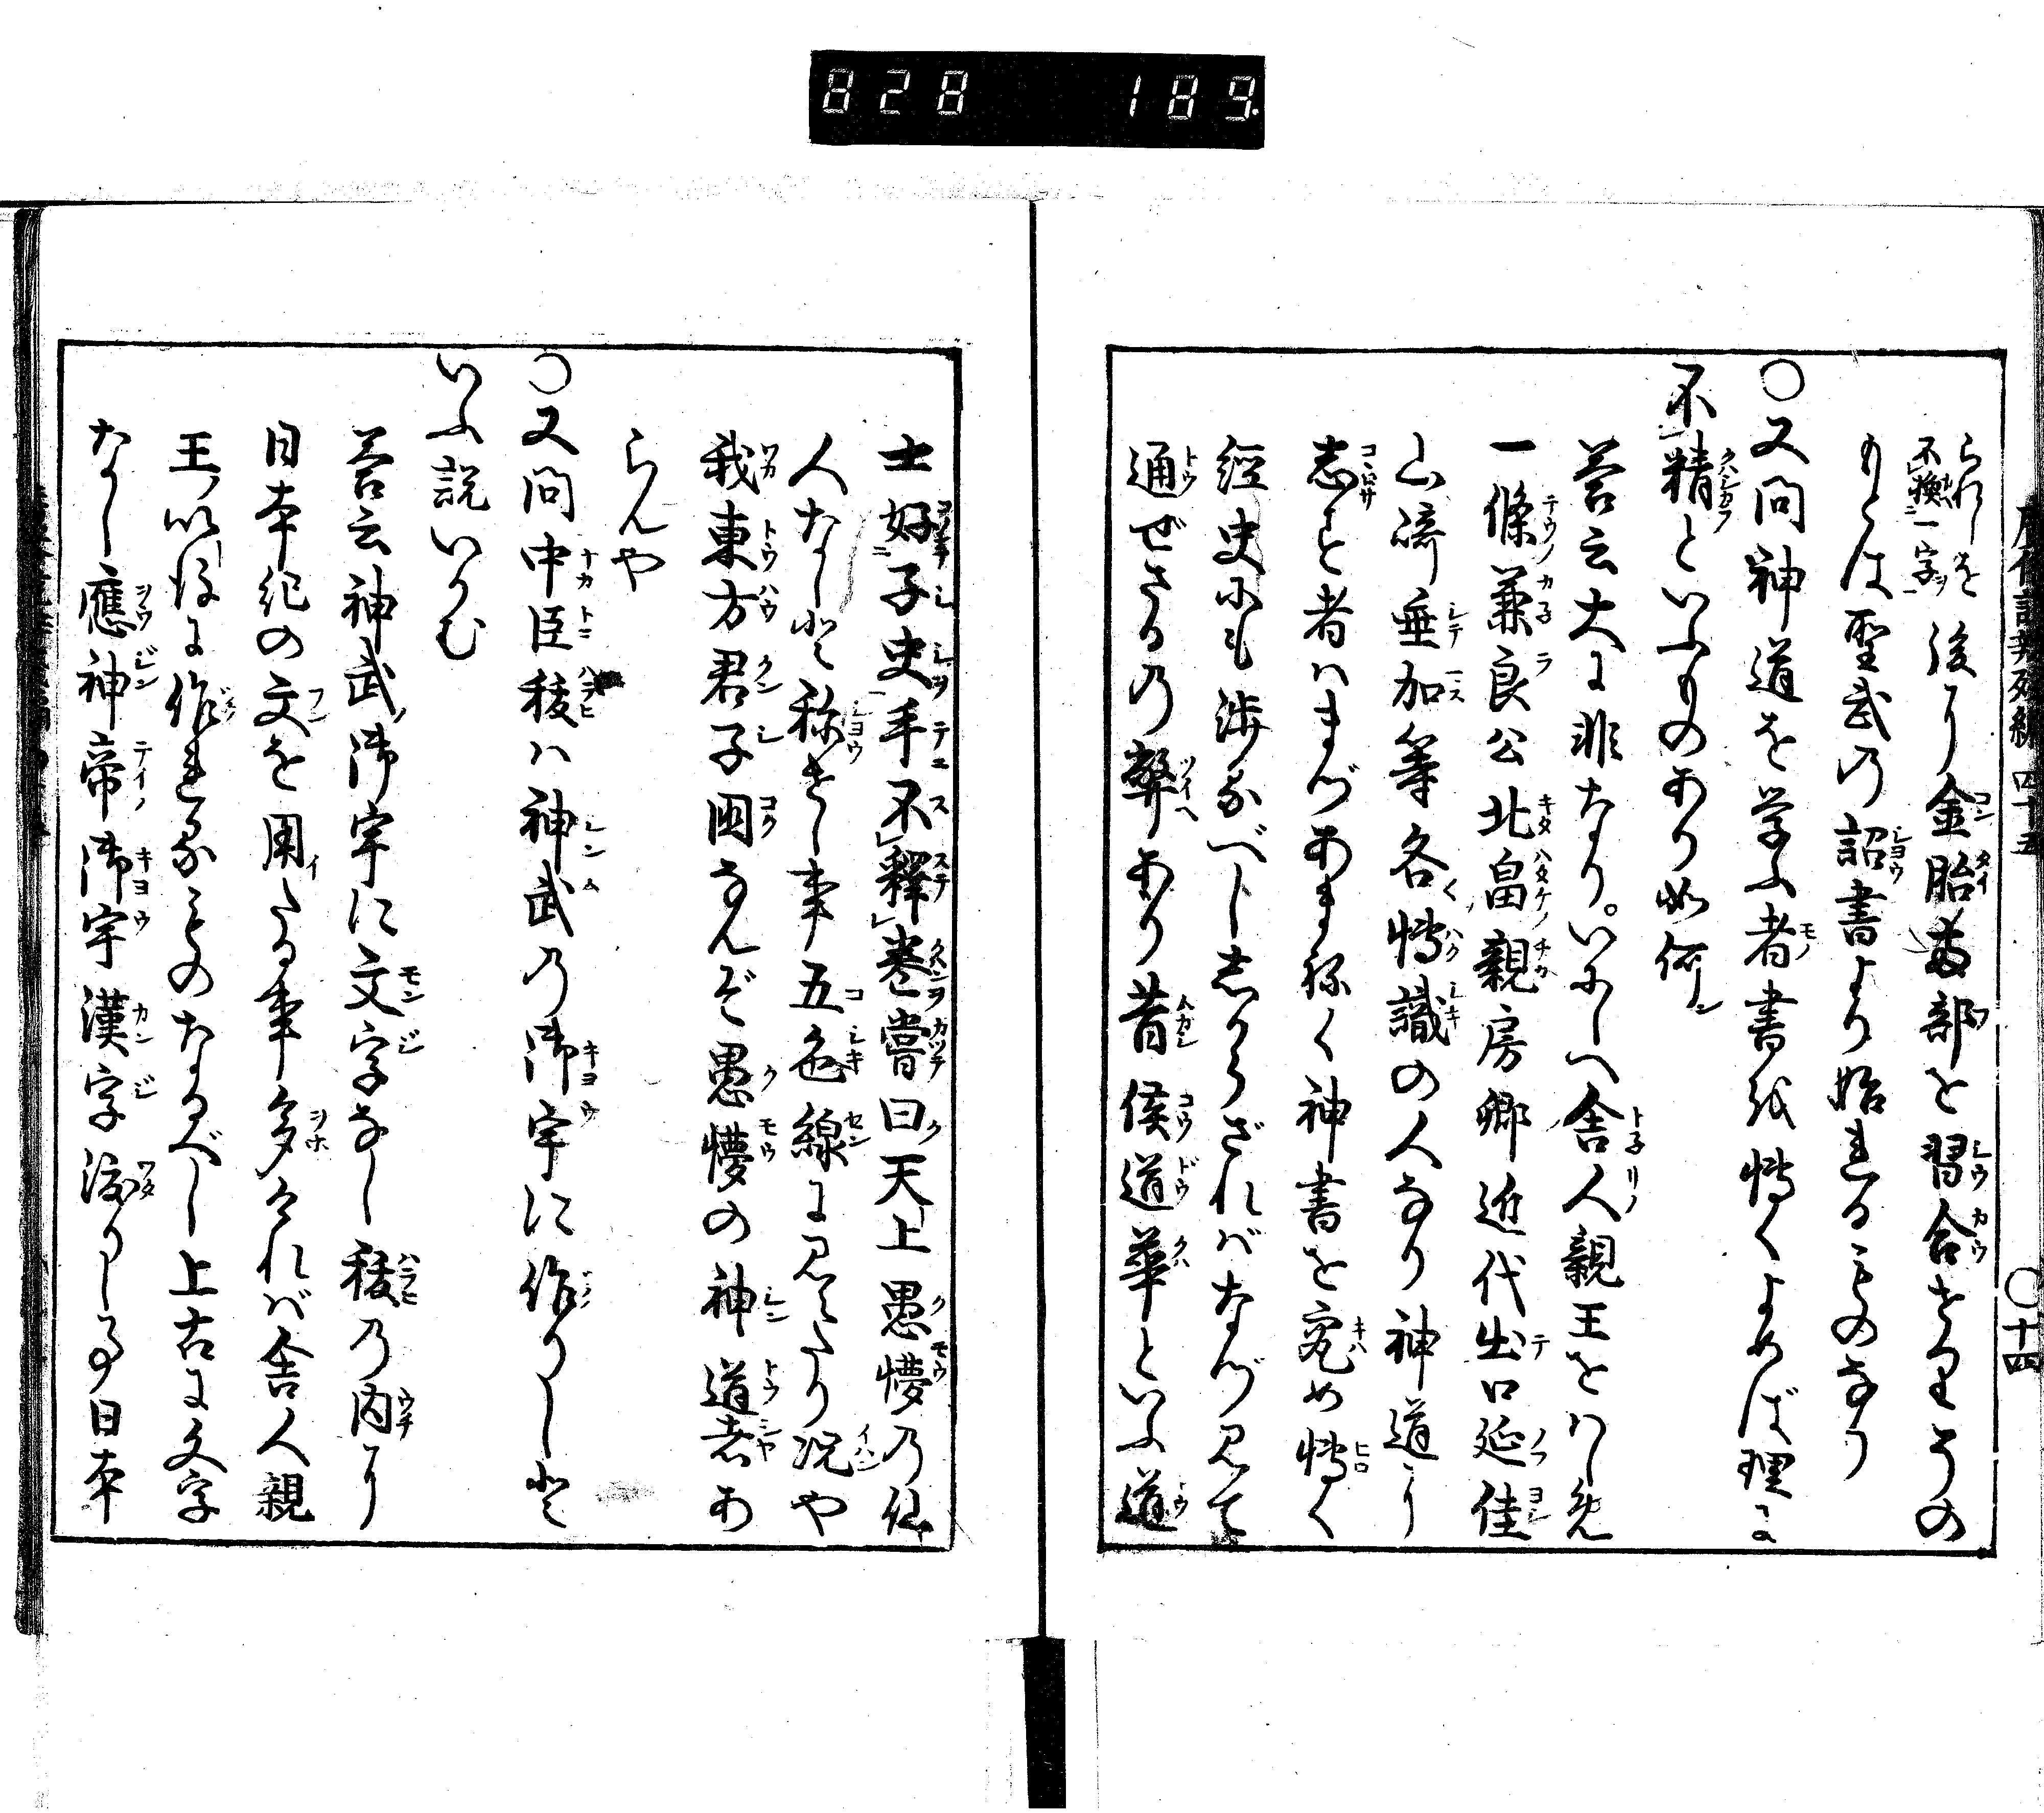 828 189
られしを
不換一字
後に金胎両部を習合せりその
もとは聖武の詔書より始れるものなり
〇又問神道を学ふ者書は博くよめば理に
不精といふものあり如何
答云大に非なりいにしへ舎人親王をはしめ
一條兼良公北畠親房卿近代出口延佳
山崎垂加等各博識の人なり神道に
志す者はまづあまねく神書を究め博く
經史にも渉るべししからざればなづみて
通ぜさるの弊あり昔侯道華といふ道
〇十四
士好子史手不釋卷嘗曰天上愚懵の仙
人なしと称せし事五色線に見えたり況や
我東方君子国なんぞ愚懵の神道者あ
らんや
〇又問中臣祓は神武の御宇に作りしと
いふ説いかむ
答云神武御宇に文字なし祓の内に
日本紀の文を用たる事多ければ舎人親
王以後に作れるものなるべし上古に文字
なし應神帝御宇漢字渡りし事日本